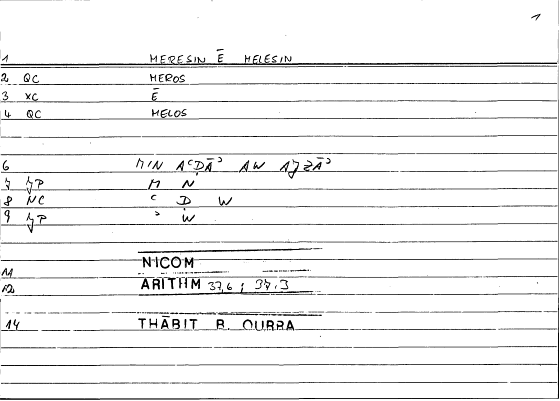 1
1 MERESIN Ē MELESIN
2 QC MEROS
3 XC Ē
4 QC MELOS
6 MIN AᶜḌĀʾ AW AJZĀʾ
7 JP M N
8 NC ᶜ Ḍ W
9 JP ʾ W
NICOM
11
12 ARITHM 37,6 ; 37.3
14 THĀBIT B. QURRA